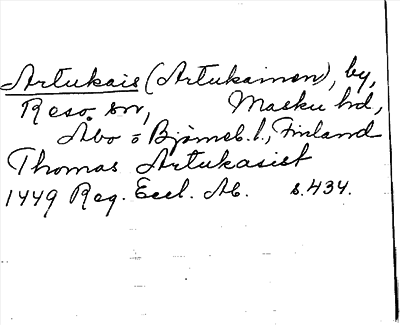 Artukais (Artukainen), by,
Reso sn, Masku hd,
Åbo o Björneb. l., Finland
Thomas Artukasist
1449 Reg. Eccl. Ab. s. 434.